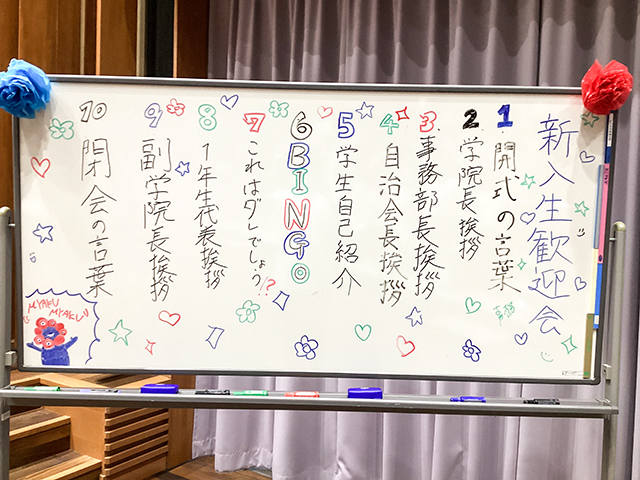 新入生歓迎会
1 開式の言葉
2 学院長挨拶
3 事務部長挨拶
4 自治会長挨拶
5 学生自己紹介
6 BINGO
7 これはダレでしょう!?
8 1年生代表挨拶
9 副学院長挨拶
10 閉会の言葉
MYAKU
MYAKU